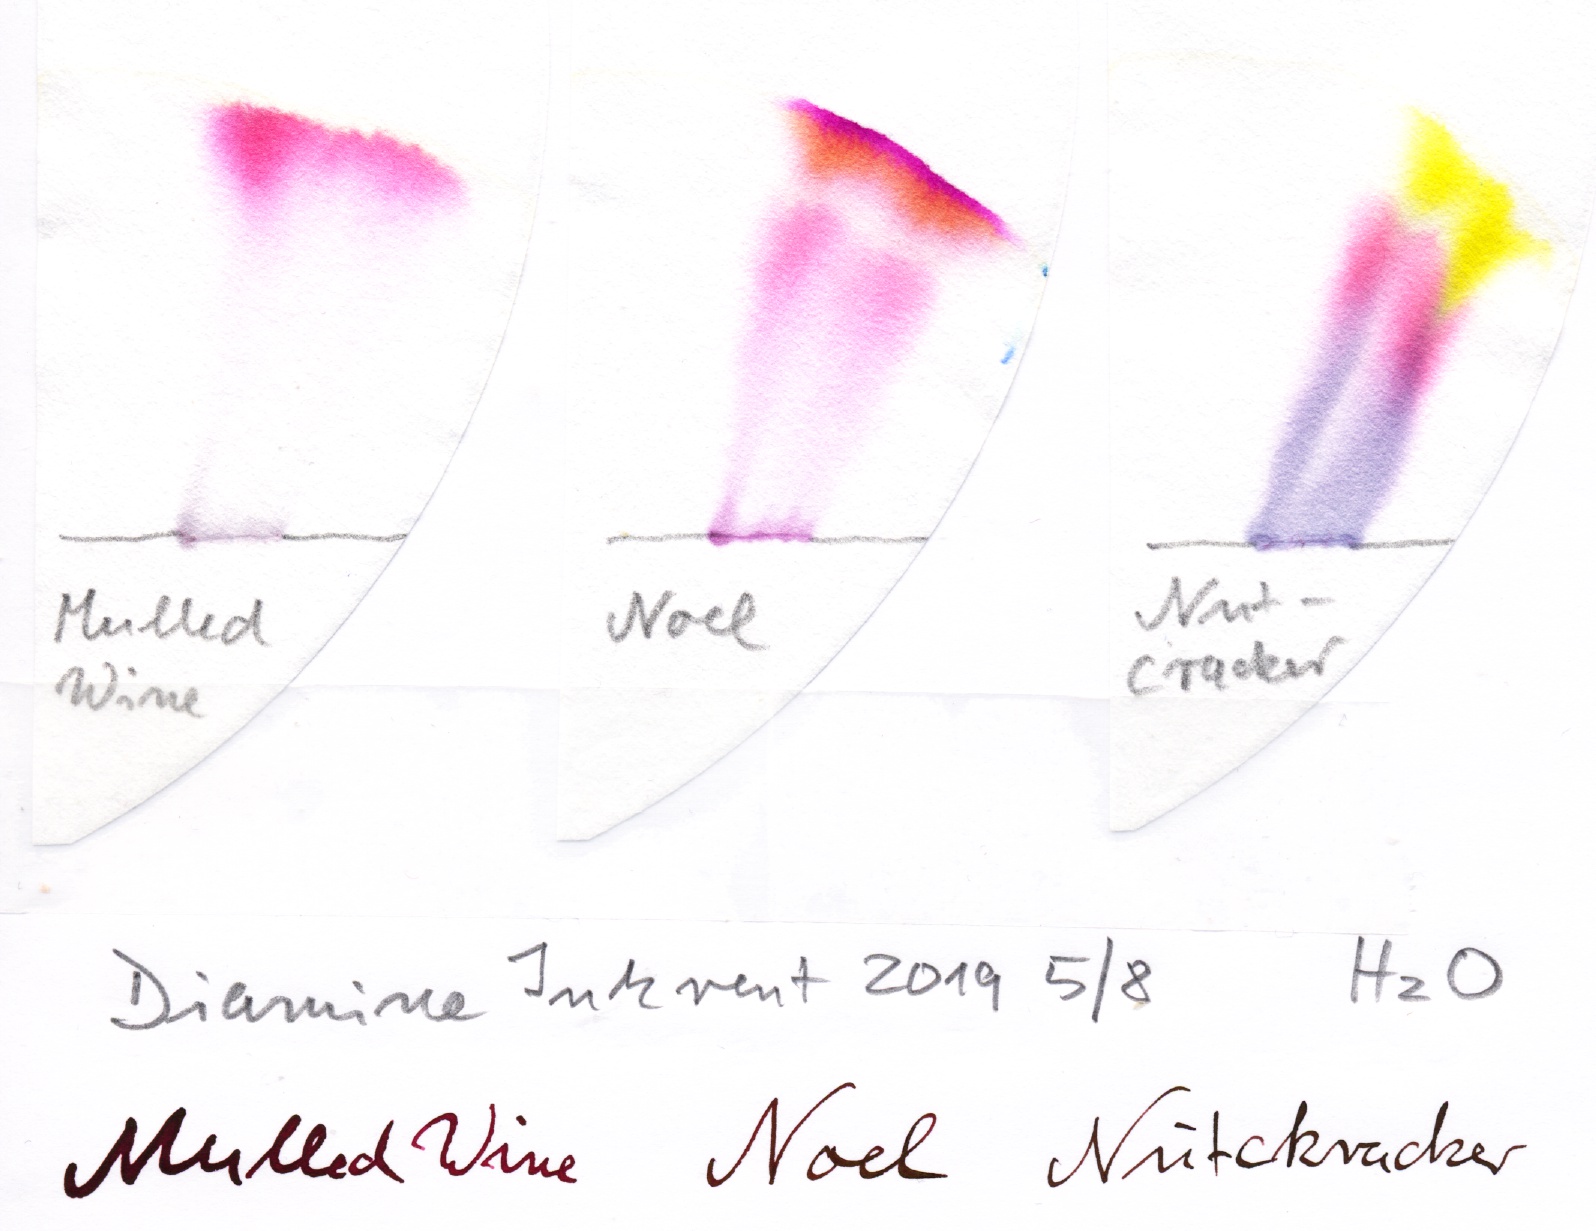 Mulled
Wine
Noel
Nut-
cracker
Diamine Inkvent 2019 5/8 H2O
Mulled Wine Noel Nutckracker